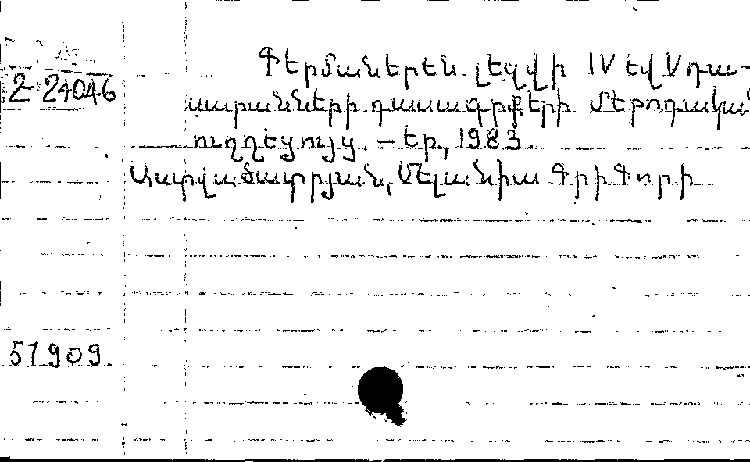 Գերմաներեն լեզվի IV եվ V դա-
2-24046
սարանների դասագրքերի մեթոդական
ուղղեցույց. – Եր., 1983.
Ասրվածատրյան, Մելանիա Գրիգորի
51909